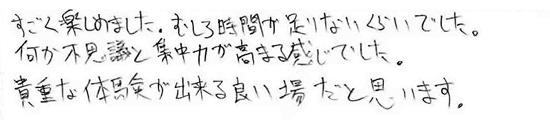 すごく楽しめました。むしろ時間が足りないくらいでした。
何か不思議と集中力が高まる感じでした。
貴重な体験が出来る良い場だと思います。